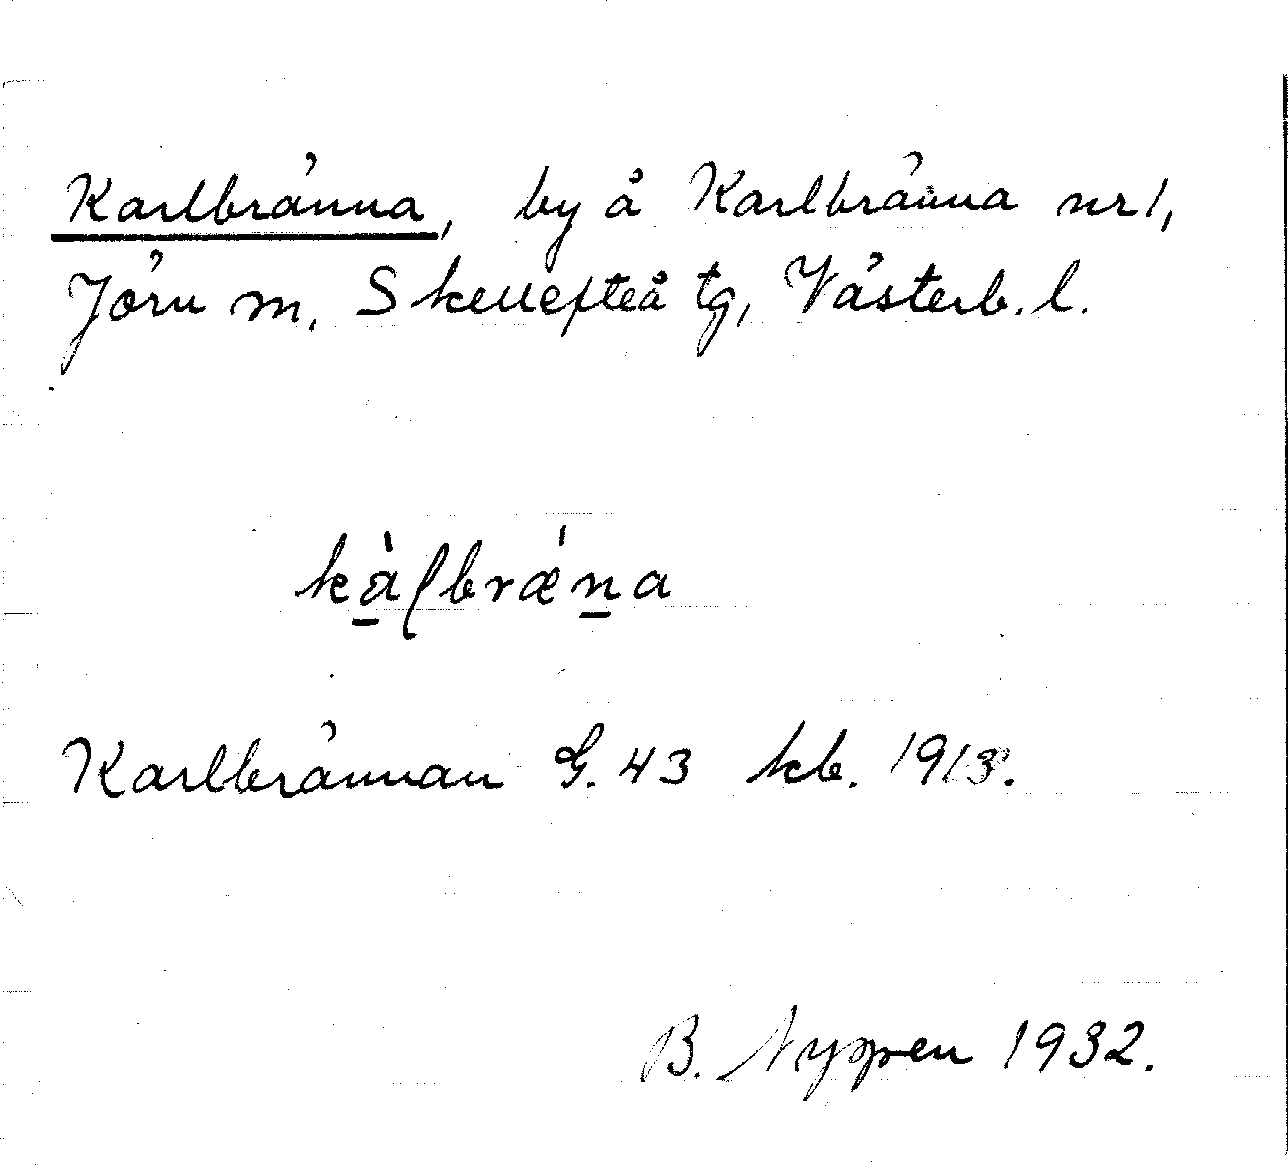 Karlbränna, by å Karlbränna nr 1,
Jörn sn. Skellefteå tg, Västerb. l.
kàɭbrǽn̲a
Karlbrännan G. 43 kb. 1913.
B. Nyppen 1932.